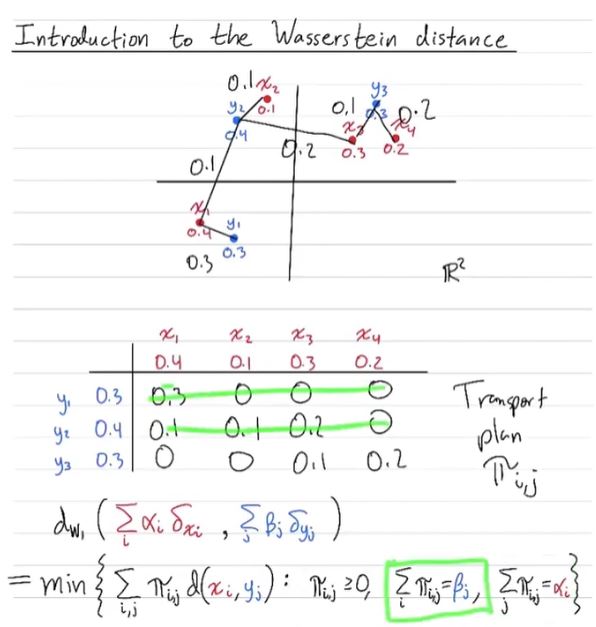 Introduction to the Wasserstein distance
0.1 x₂
y₂ 0.1
0.4
y₃
0.1 0.3 0.2
x₃ x₄
0.3 0.2
0.2
0.1
x₁ y₁
0.4 0.3
0.3
ℝ²
x₁ x₂ x₃ x₄
0.4 0.1 0.3 0.2
y₁ 0.3 0.3 0 0 0
y₂ 0.4 0.1 0.1 0.2 0
y₃ 0.3 0 0 0.1 0.2
Transport
plan
πᵢ,ⱼ
d_W₁ ( ∑ᵢ αᵢ δₓᵢ , ∑ⱼ βⱼ δyⱼ )
= min { ∑ᵢ,ⱼ πᵢ,ⱼ d(xᵢ, yⱼ) : πᵢ,ⱼ ≥ 0, ∑ᵢ πᵢ,ⱼ = βⱼ, ∑ⱼ πᵢ,ⱼ = αᵢ }